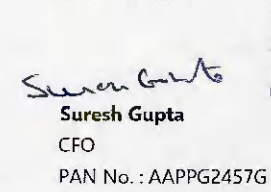 Suresh Gupta
Suresh Gupta
CFO
PAN No. : AAPPG2457G